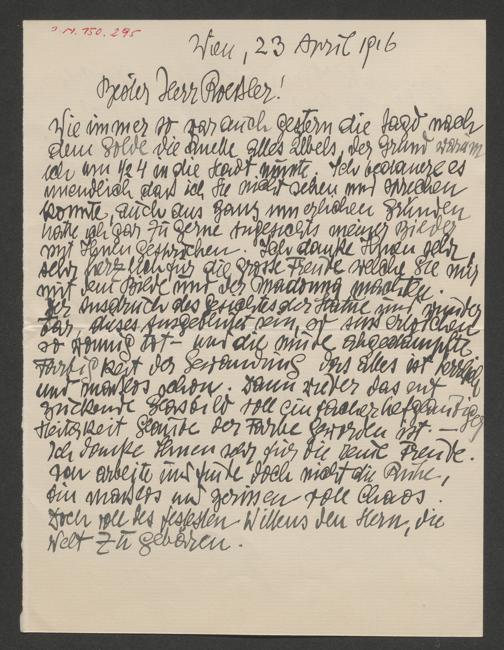 N. 150.295
Wien, 23 April 1916
Herr Roessler!
Wie immer so war auch gestern die Jagd nach
dem Golde die alles Übels, der Grund warum
ich um ½ 4 in die Stadt musste. Ich bedauere es
unendlich dass ich Sie nicht sehen und sprechen
konnte, auch aus ganz Gründen
hätte ich gar zu gerne angesichts meiner Bilder
mit Ihnen gesprochen. Ich danke Ihnen sehr,
sehr herzlich für die grosse Freude welche Sie mir
mit dem Bilde und der Madonna machten.
Der Ausdruck des Gesichtes der Statue und
dieses
so wonnig ist – und die müde abgedämpfte
Farbigkeit der Gewandung das alles ist herrlich
und masslos schön. Dann wieder das ent-
zückende Glasbild voll einfacher
Heiterkeit Glaube der Farbe geworden ist –
Ich danke Ihnen sehr für die Freude.
arbeite und finde doch nicht die Ruhe,
bin masslos und voll Chaos.
Doch voll des festesten Willens den Stern, die
Welt zu gebären.